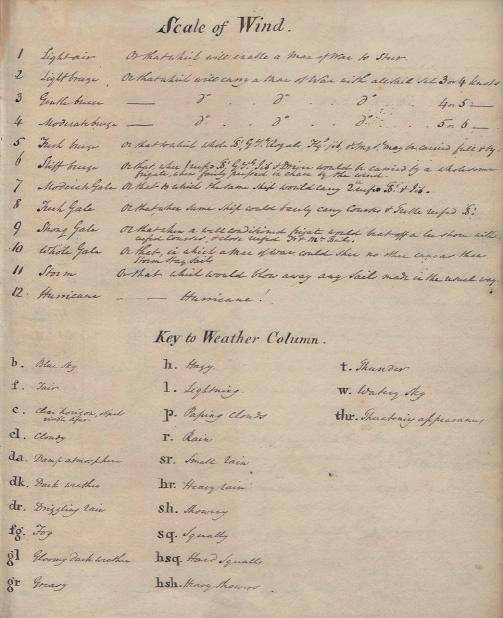 Scale of Wind.
1 Light air Or that which will enable a Man of War to Steer.
2 Light breeze Or that which will carry a Man of War with all sail set 3 or 4 knots
3 Gentle breeze — Dº . . Dº . . Dº . 4 or 5 —
4 Moderate breeze — Dº . . Dº . . Dº . 5 or 6 —
5 Fresh breeze Or that which whole Royals, may be carried full & by
6 Stiff breeze Or that when would be carried by a wholesome
frigate, when fairly pressed in chace by the wind.
7 Moderate Gale Or that to which the same Ship would carry 2 reefd & Jib.
8 Fresh Gale Or that when same Ship would barely carry Courses & reefd
9 Strong Gale Or that when a well conditioned frigate would beat off a lee shore with
reefed Courses, & close reefed
10 Whole Gale Or that, in which a Man of War could shew no other canvas than
Storm Stay Sails
11 Storm Or that which would blow away any Sail made in the usual way.
12 Hurricane — — Hurricane!
Key to Weather Column.
b. Blue Sky
f. Fair
c. Clear horizon,
cl. Cloudy
da. Damp atmosphere
dk. Dark weather
dr. Drizzling rain
fg. Fog
gl Gloomy dark weather
gr Greasy
h. Hazy
l. Lightning
p. Passing Clouds
r. Rain
sr. Small rain
hr. Heavy rain
sh. Showery
sq. Squally
hsq. Hard Squalls
hsh. Heavy Showers
t. Thunder
w. Watery Sky
thr. appearance